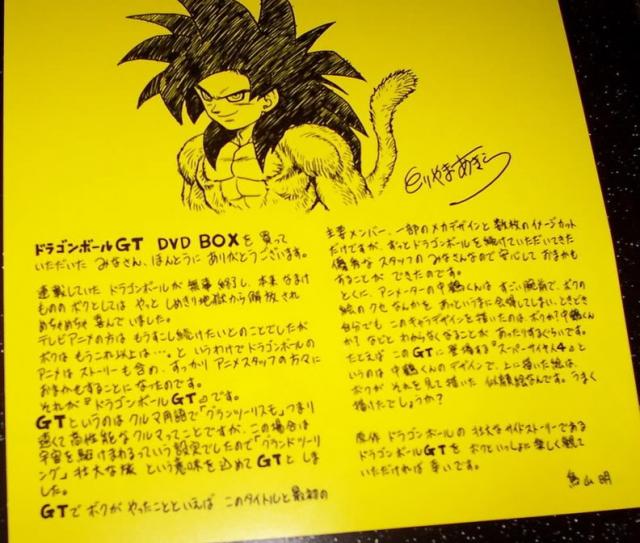 とりやまあきら
ドラゴンボールGT DVD BOXを買って
いただいた みなさん、ほんとうに ありがとうございます。
連載していた ドラゴンボールが 無事 終了し、本来 なまけ
ものの ボクとしては やっと しめきり地獄から 解放され
めちゃめちゃ 喜んでいました。
テレビアニメの方は もうすこし続けたいとのことでしたが
ボクは もうこれ以上は…。と いうわけで ドラゴンボールの
アニメは ストーリーも含め、すっかり アニメスタッフの方々に
おまかせすることに なったのです。
それが『ドラゴンボールGT』です。
GTというのは クルマ用語で「グランツーリスモ」つまり
速くて高性能な クルマってことですが、この場合は
宇宙を駆けまわるっていう設定でしたので「グランドツーリ
ング」壮大な旅 という意味を込めてGTとしま
した。
GTで ボクが やったことといえば このタイトルと 最初の
主要メンバー、一部のメカデザインと 数枚の イメージカット
だけですが、ずっと ドラゴンボールを 続けていただいてきた
優秀な スタッフの みなさんなので 安心して おまかせ
することが できたのです。
とくに、アニメーターの 中鶴くんは すごい腕前で、ボクの
絵の クセ なんかを あっという まに 会得してしまい、ときどき
自分でも このキャラデザインを 描いたのは ボクか?中鶴くん
か? などと わからなくなることが あったりするぐらいです。
たとえば このGTに 登場する『スーパーサイヤ人4』と
いうのは 中鶴くんの デザインで、上に描いた絵は、
ボクが それを見て描いた 似顔絵なんです。うまく
描けたでしょうか?
原作 ドラゴンボールの 壮大なサイドストーリーである
ドラゴンボールGTを ボクといっしょに 楽しく 観て
いただければ 幸いです。
鳥山明